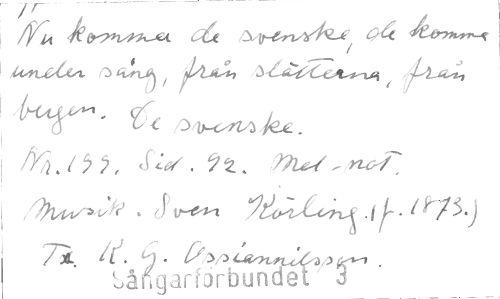 Nu komma de svenske, de komma
under sång, från slätterna, från
bergen. De svenske.
Nr. 199. Sid. 92. Mel-not.
Musik. Sven Körling. (f. 1873.)
Tx. K. G. Ossiannilsson.
Sångarförbundet 3